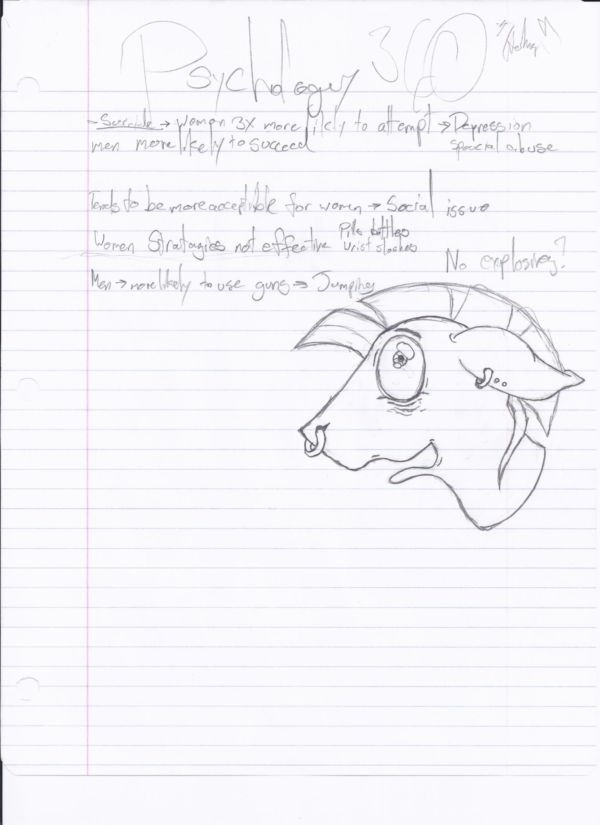 Psychology 360
- Suicide → women 3x more likely to attempt → Depression
men more likely to succeed
abuse
Tends to be more acceptible for women → Social issue
Women Stratagies not effective
Pills bottles
wrist slashes
No explosives?
Men → more likely to use guns → Jumping